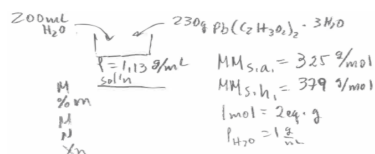 200mL H₂O
230g Pb(C₂H₃O₂)₂ · 3H₂O
ρ = 1,13 g/mL
sol'n
M
%m
M
N
Xn
MM s.a. = 325 g/mol
MM s.h. = 379 g/mol
1mol = 2eq·g
ρ H₂O = 1 g/mL